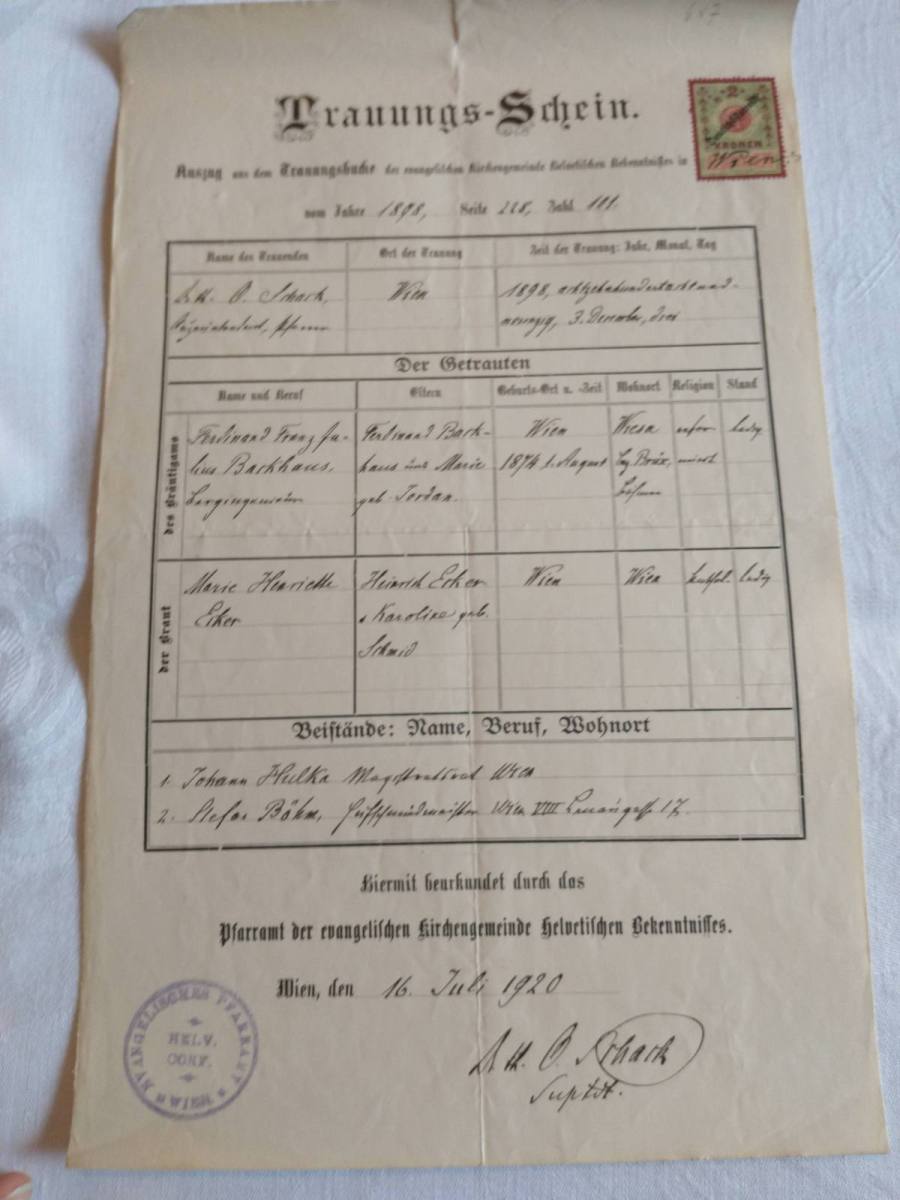 Trauungs-Schein.
2
KRONEN
Auszug aus dem Trauungsbuche der evangelischen Kirchengemeinde Helvetischen Bekenntnisses in Wien
vom Jahre 1898, Seite 228, Zahl 111.
Name des Trauenden Ort der Trauung Zeit der Trauung: Jahr, Monat, Tag
O. Schack, Wien 1898, achtzehnhundertachtund-
Pfarrer neunzig, 3. Dezember, drei
Der Getrauten
Name und Beruf Eltern Geburts-Ort u. -Zeit Wohnort Religion Stand
des Bräutigams
Ferdinand Franz Ju- Ferdinand Back- Wien Wiesa refor ledig
lius Backhaus, haus und Marie 1874 1. August bz. Brüx, miert
Bergingenieur geb. Jordan. Böhmen
der Braut
Marie Henriette Heinrich Ecker Wien Wien kathol. ledig
Ecker & Karoline geb.
Schmid
Beistände: Name, Beruf, Wohnort
1. Johann Hulka Magistratsrat Wien
2. Stefan Böhm, Hufschmiedmeister Wien VIII Lenaugasse 17.
Hiermit beurkundet durch das
Pfarramt der evangelischen Kirchengemeinde Helvetischen Bekenntnisses.
Wien, den 16. Juli 1920
EVANGELISCHES PFARRAMT WIEN
HELV.
CONF.
O. Schack
Suptdt.